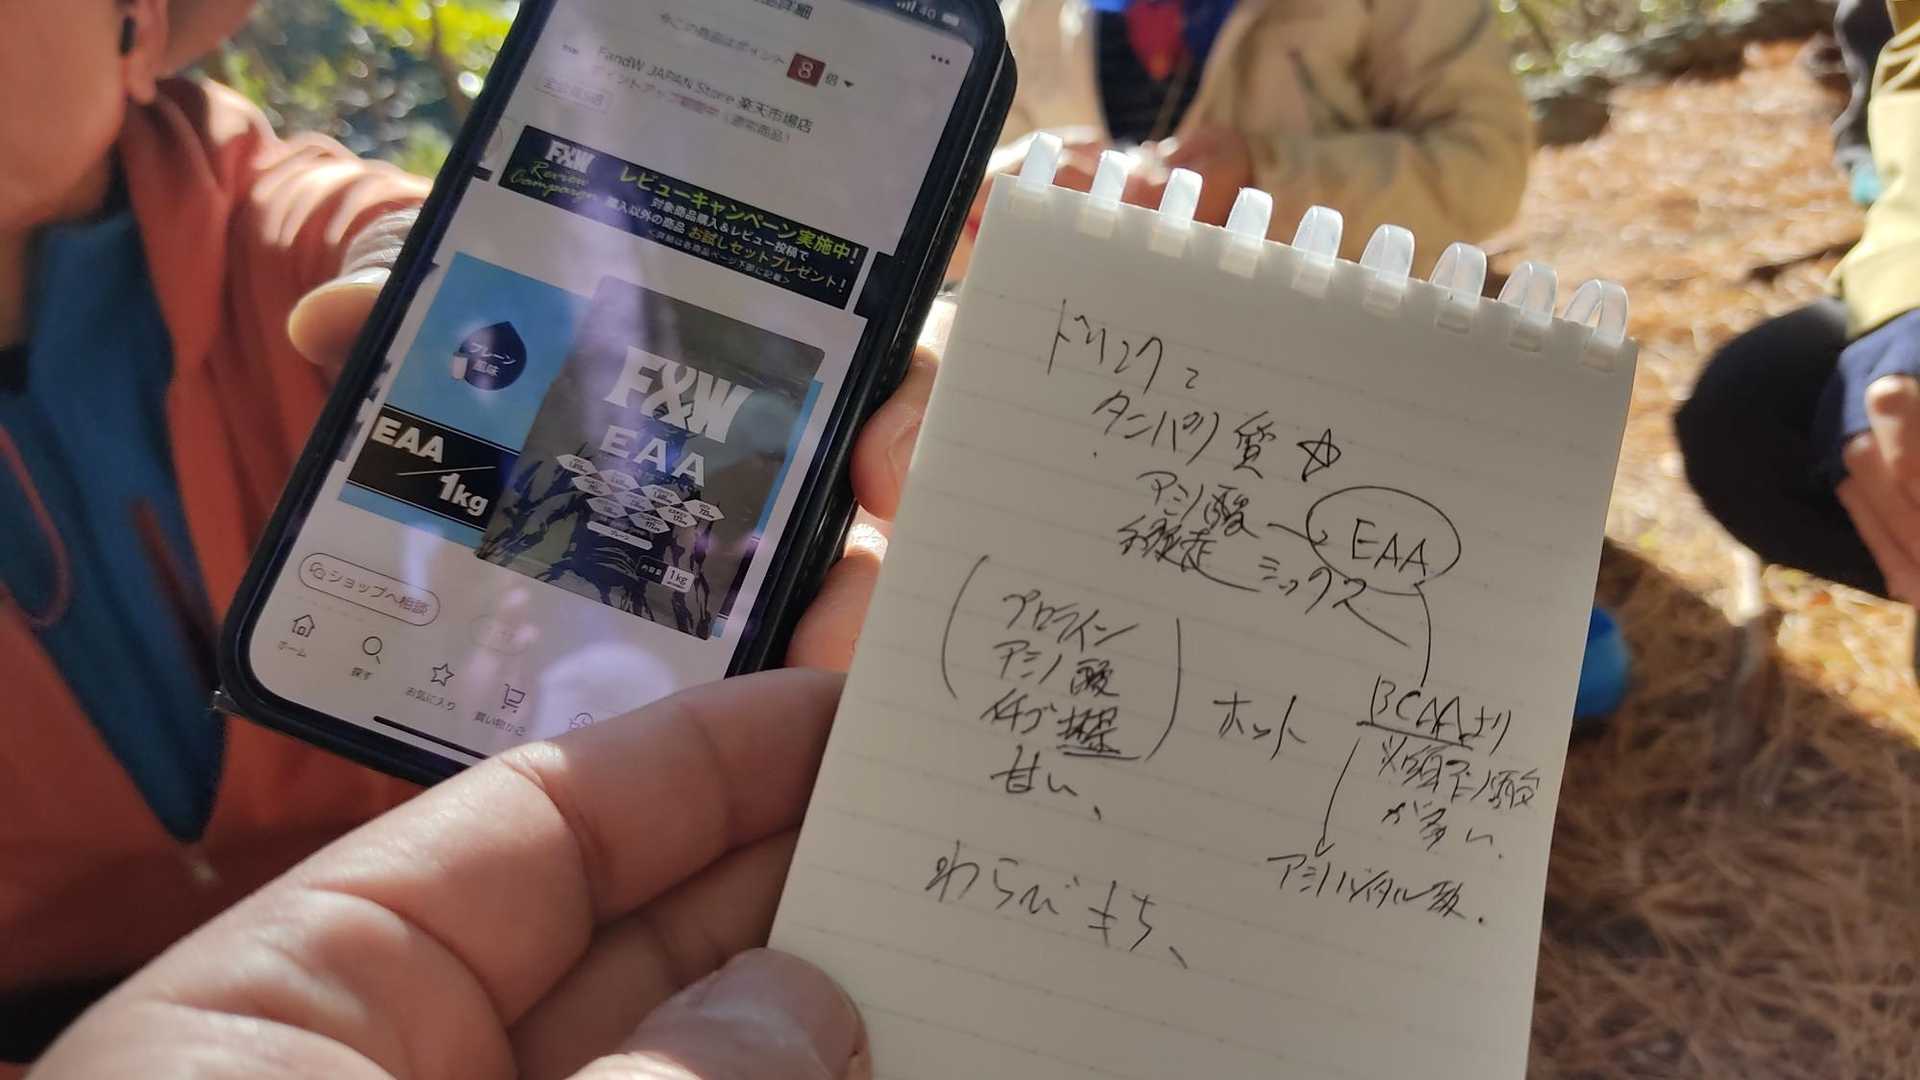 今この商品はポイント 8 倍
FandW JAPAN Store 楽天市場店
F&W
Review
Campaign
レビューキャンペーン実施中!
対象商品購入&レビュー投稿で
購入以外の商品 お試しセットプレゼント!
<詳細は各商品ページ下部に記載>
プレーン
風味
EAA
1kg
F&W
EAA
プレーン
内容量 1kg
ショップへ相談
ホーム
探す
お気に入り
買い物かご
ドリンク
タンパク質
アミノ酸
EAA
ミックス
アミノ酸
イチゴ
甘い、
ホット
BCAAより
アミノ酸
が多い.
アミノバイタル
わらびもち、